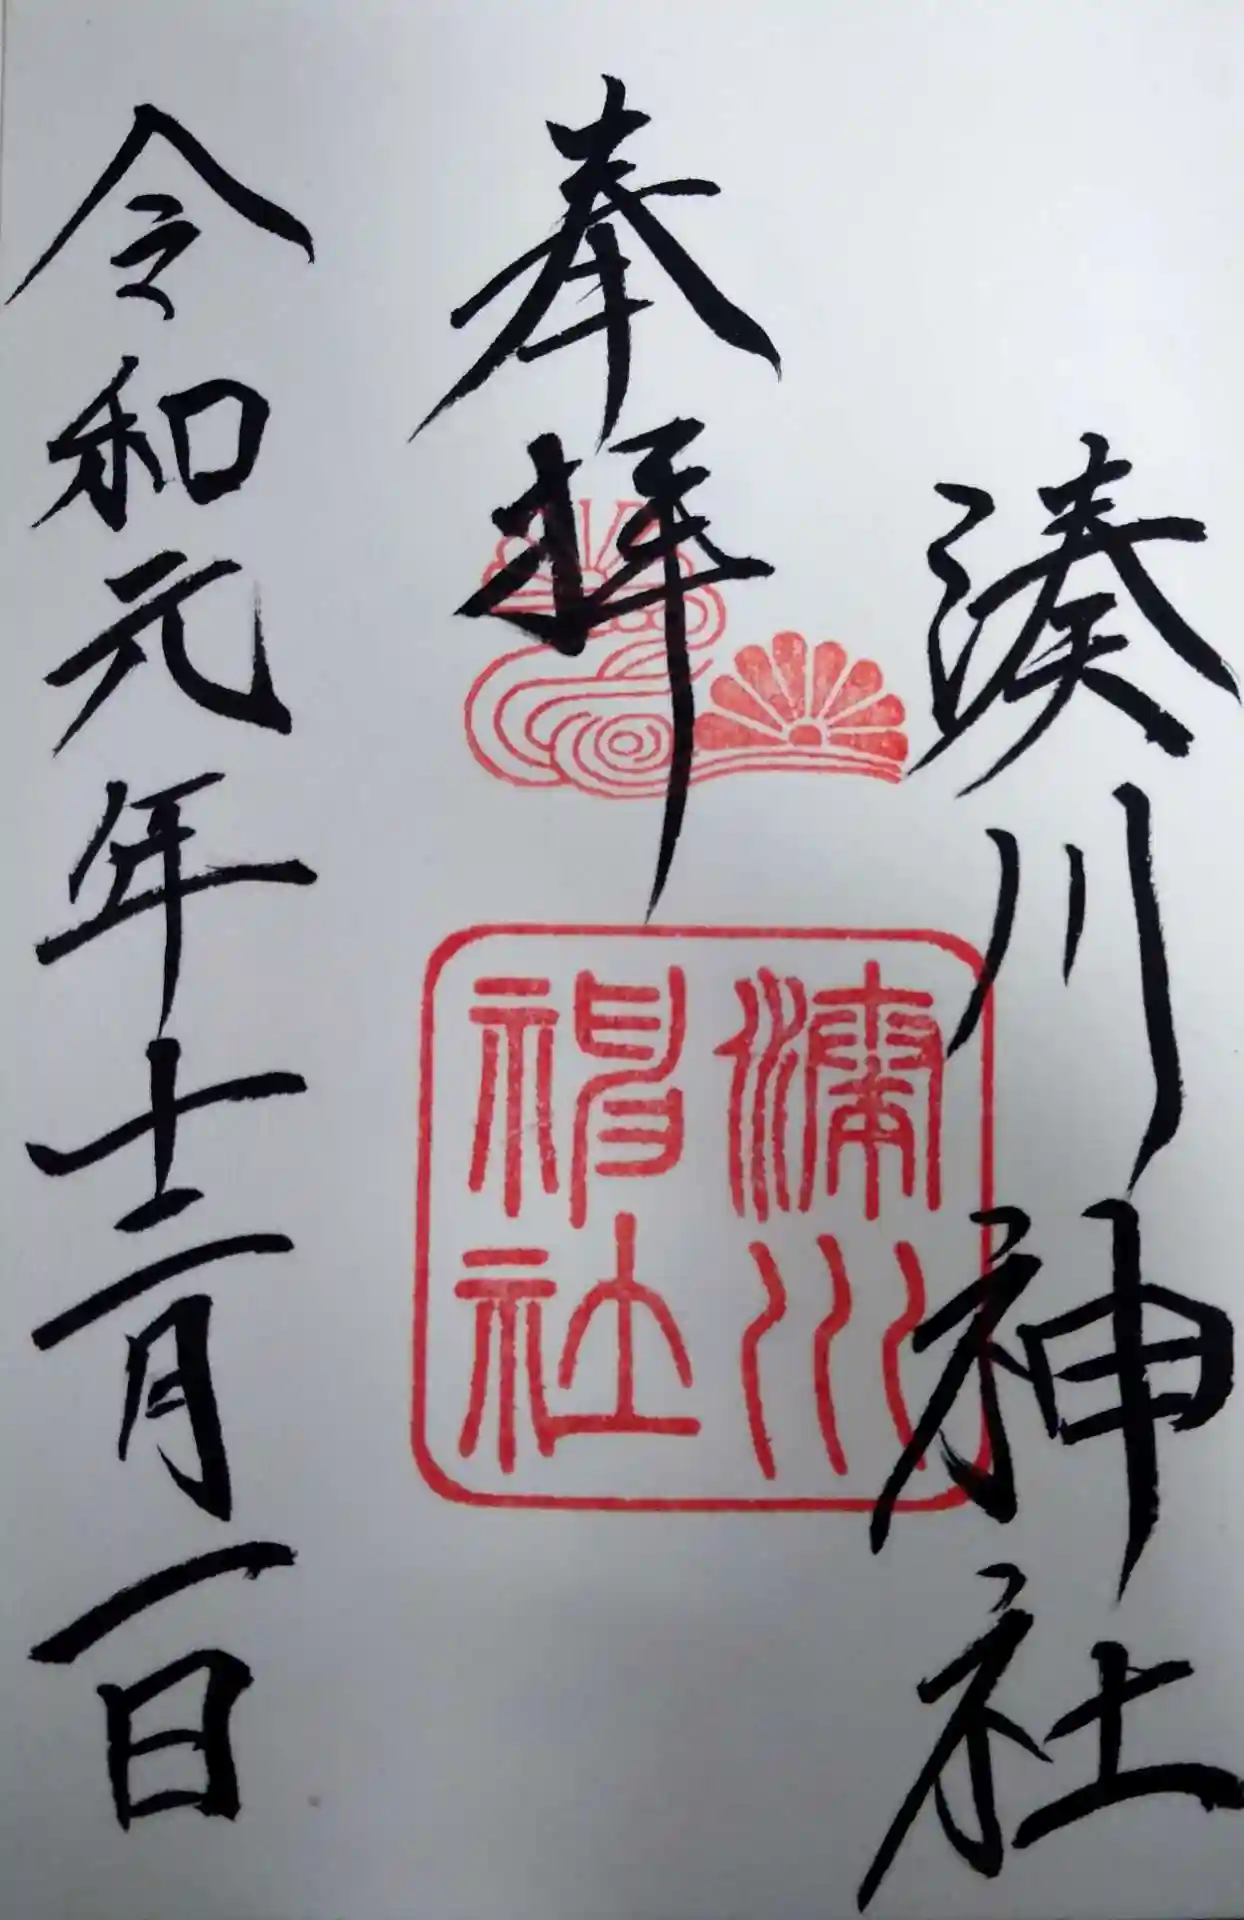 湊川神社
奉拝
湊川
神社
令和元年十二月一日